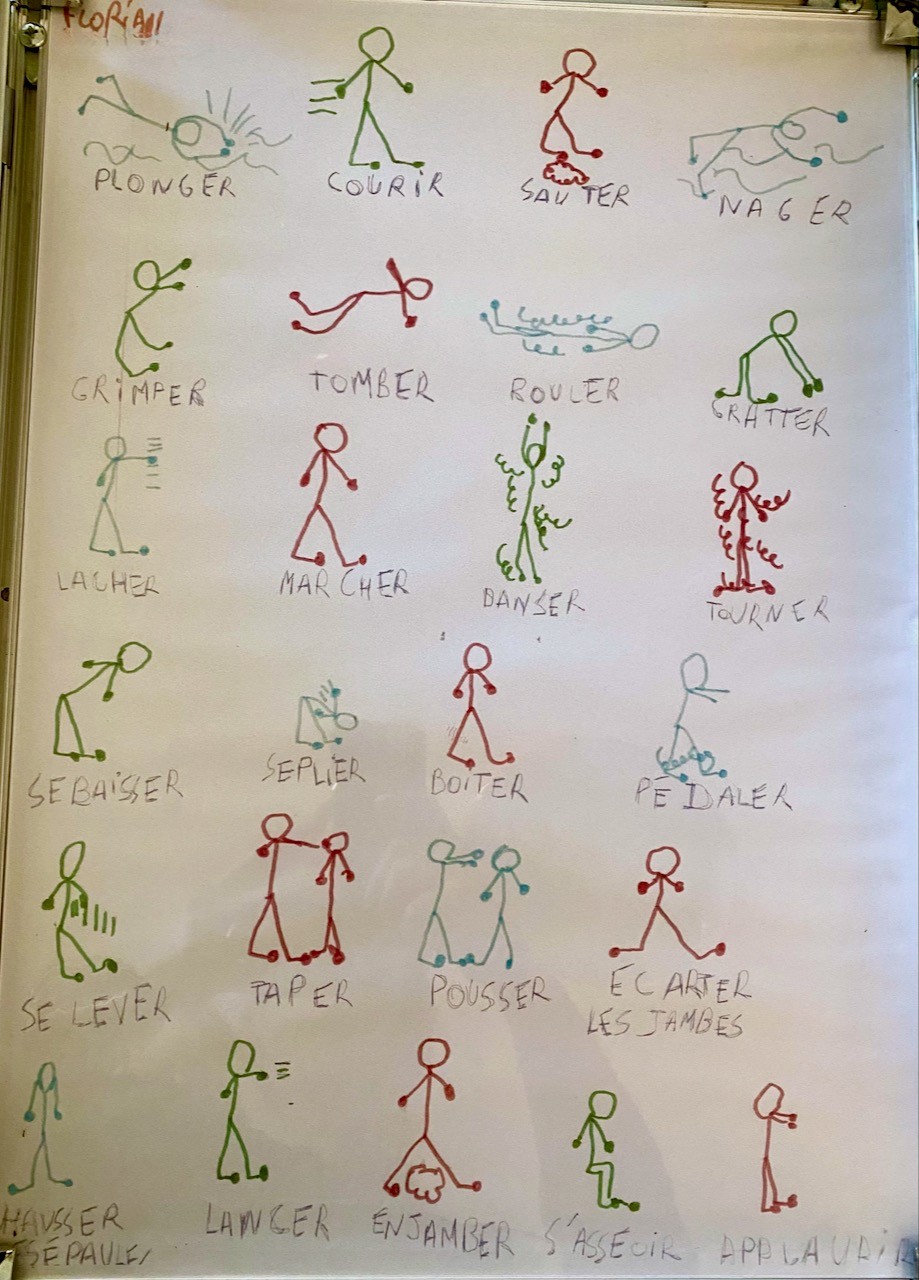 FLORIAN
PLONGER COURIR SAUTER NAGER
GRIMPER TOMBER ROULER GRATTER
LACHER MARCHER DANSER TOURNER
SE BAISSER SE PLIER BOITER PÉDALER
SE LEVER TAPER POUSSER ECARTER
LES JAMBES
HAUSSER LANCER ENJAMBER S'ASSEOIR APPLAUDIR
SÉPAULES